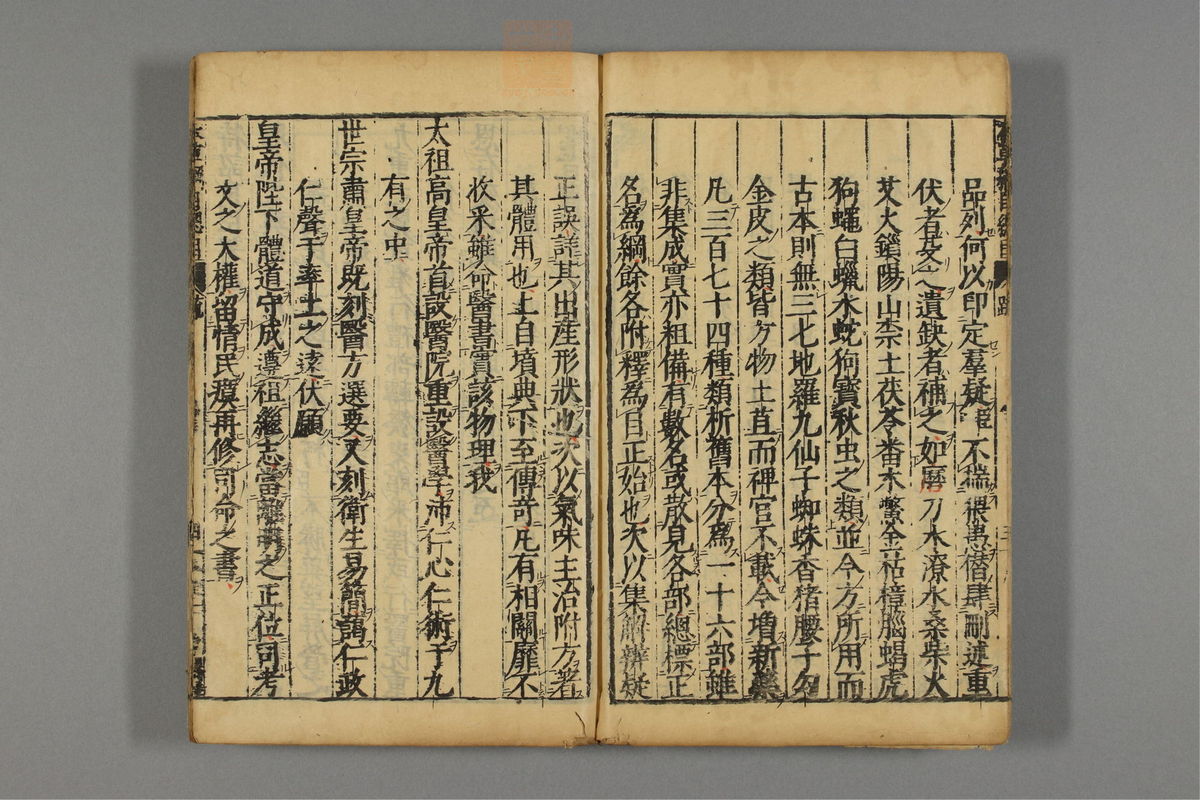 品列何以印定羣疑臣不揣猥愚僣肆刪述重
伏者芟之遺缺者補之如磨刀水潦水桑柴火
艾火鎖陽山柰土茯苓番木鱉金枯樟腦蝎虎
狗蠅白蠟水蛇狗寶秋虫之類並今方所用而
古本則無三七地羅九仙子蜘蛛香猪腰子勾
金皮之類皆方物土苴而稗官不載今增新藥
凡三百七十四種類析舊本分爲一十六部雖
非集成實亦粗備有數名或散見各部總標正
名爲綱餘各附釋爲目正始也次以集解辨疑
正誤詳其出産形狀也次以氣味主治附方著
其體用也上自墳典下至傳竒凡有相關靡不
收采雖命醫書實該物理我
太祖高皇帝首設醫院重設醫學沛仁心仁術于九
有之中
世宗肅皇帝既刻醫方選要又刻衛生易簡藹仁政
仁聲于率土之遠伏願
皇帝陛下體道守成遵祖繼志當離明之正位司考
文之大權留情民瘼再修司命之書